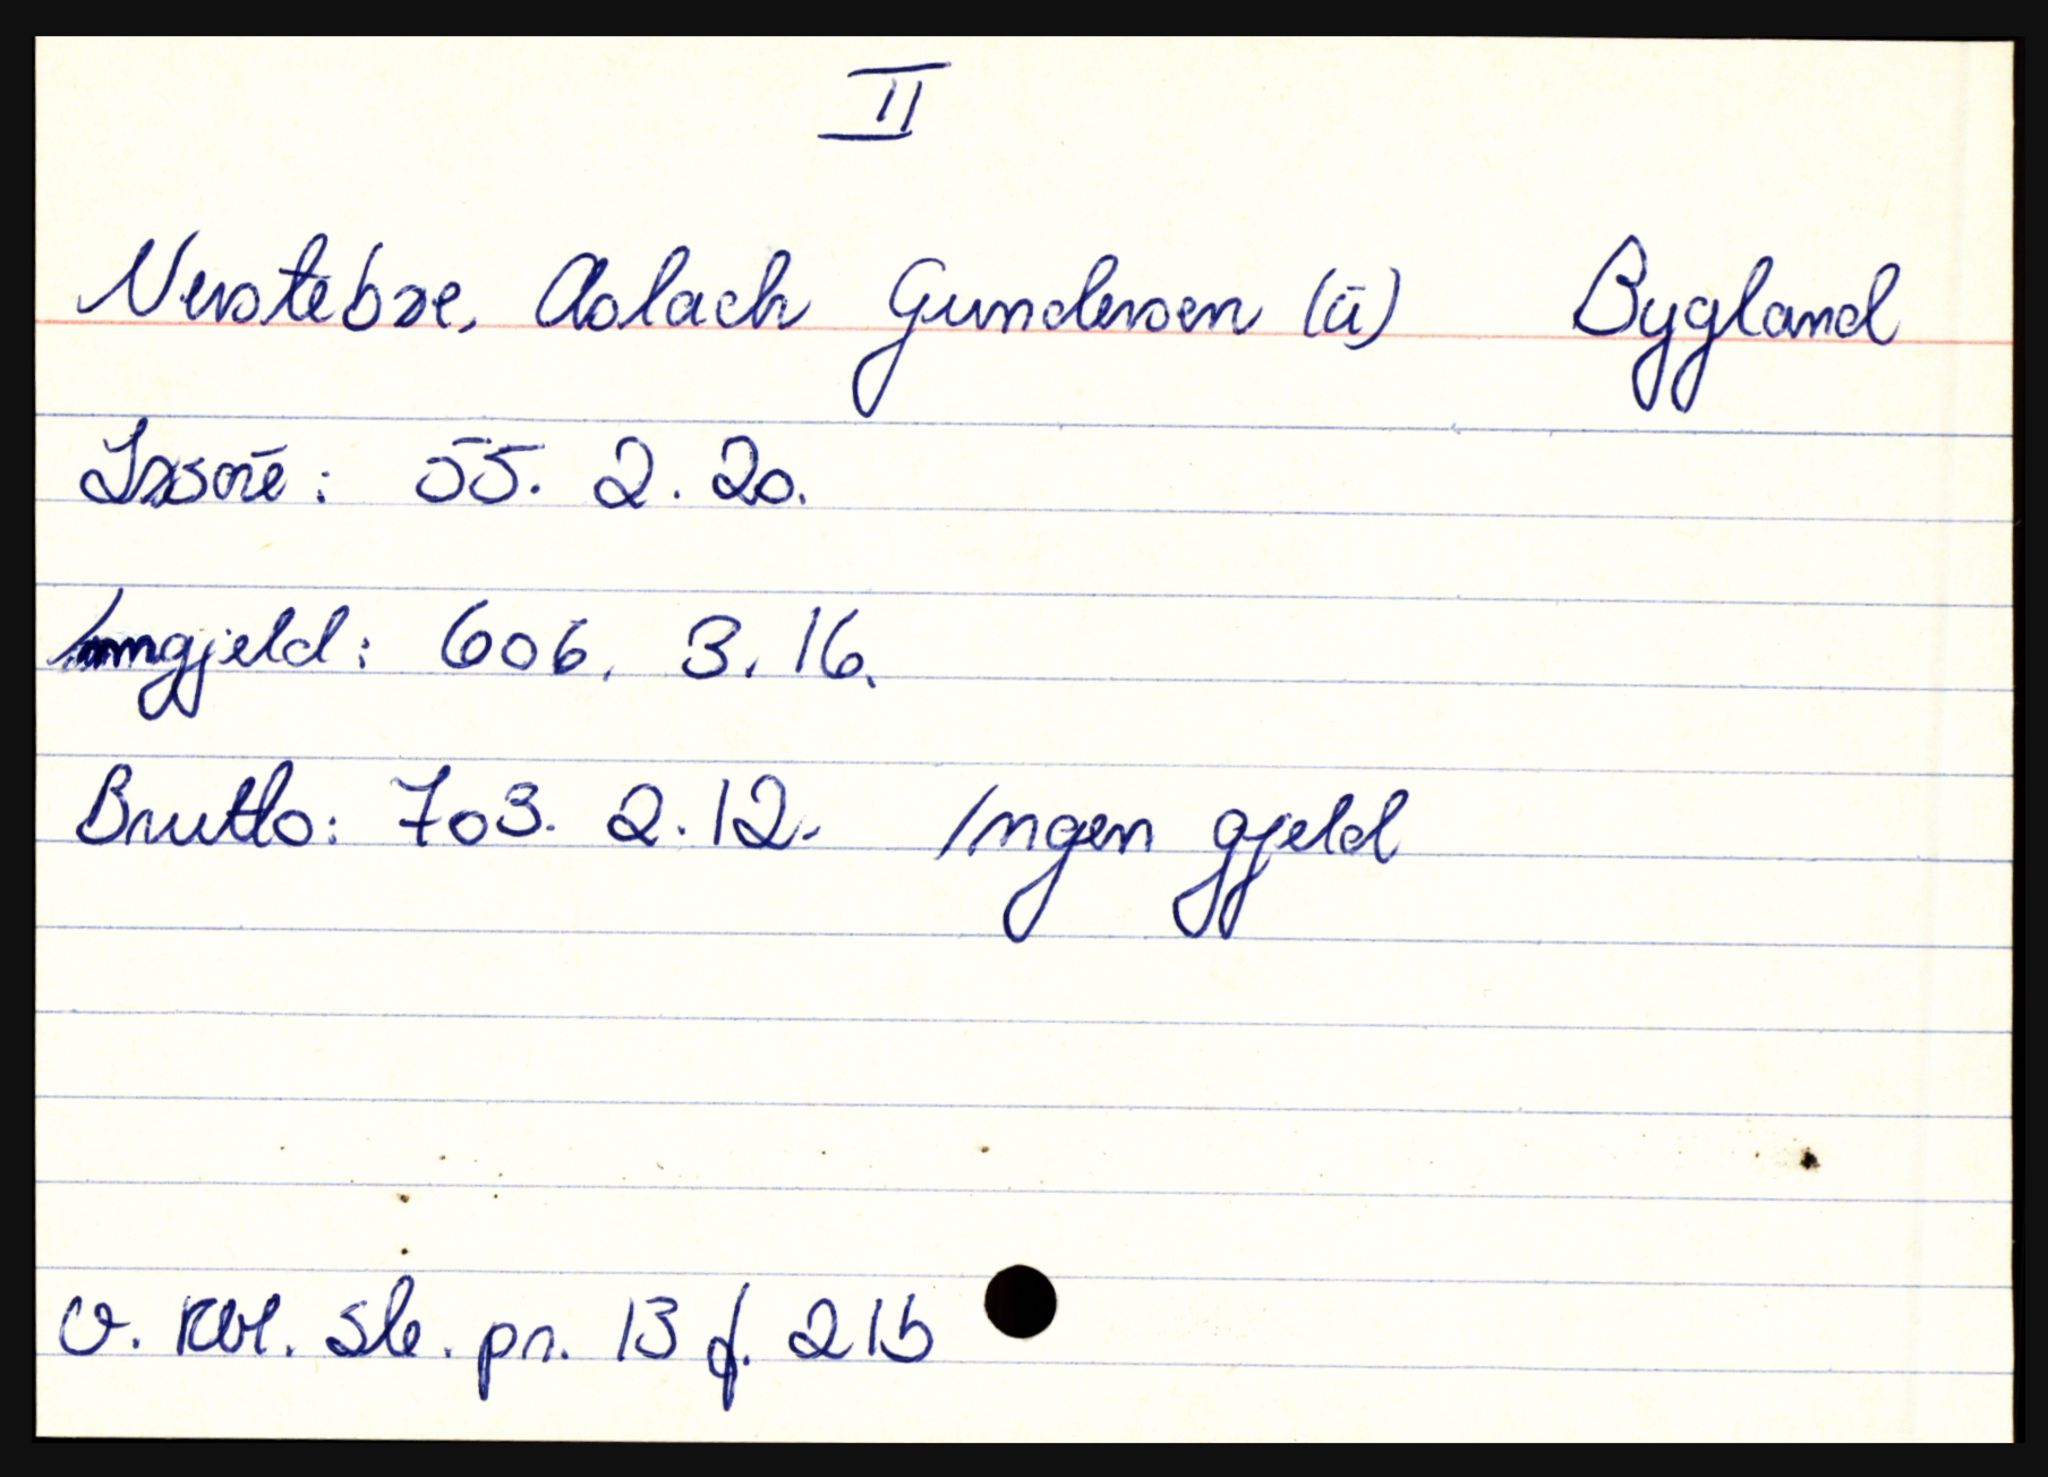 II
Nerstebøe, Aslach Gundersen (u) Bygland
Løsøre: 55. 2. 20.
Inngjeld: 606. 3. 16.
Brutto: 703. 2. 12. Ingen gjeld
V. Rbl. sk. pr. 13 f. 21b